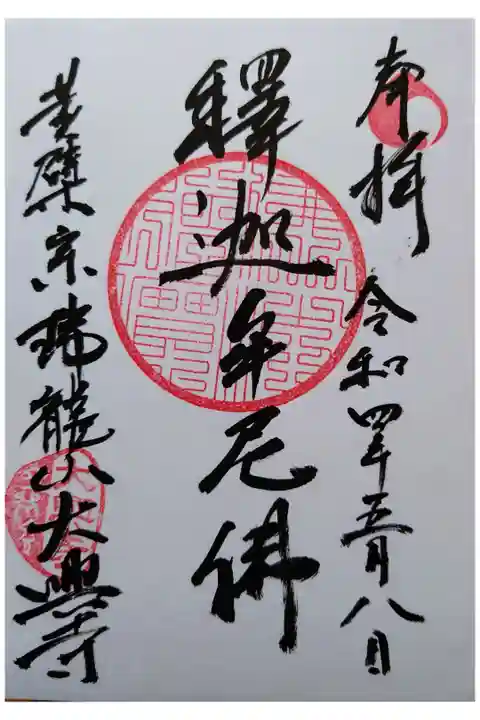 奉拝 令和四年五月八日
釋迦牟尼佛
黄檗宗瑞龍山大興寺